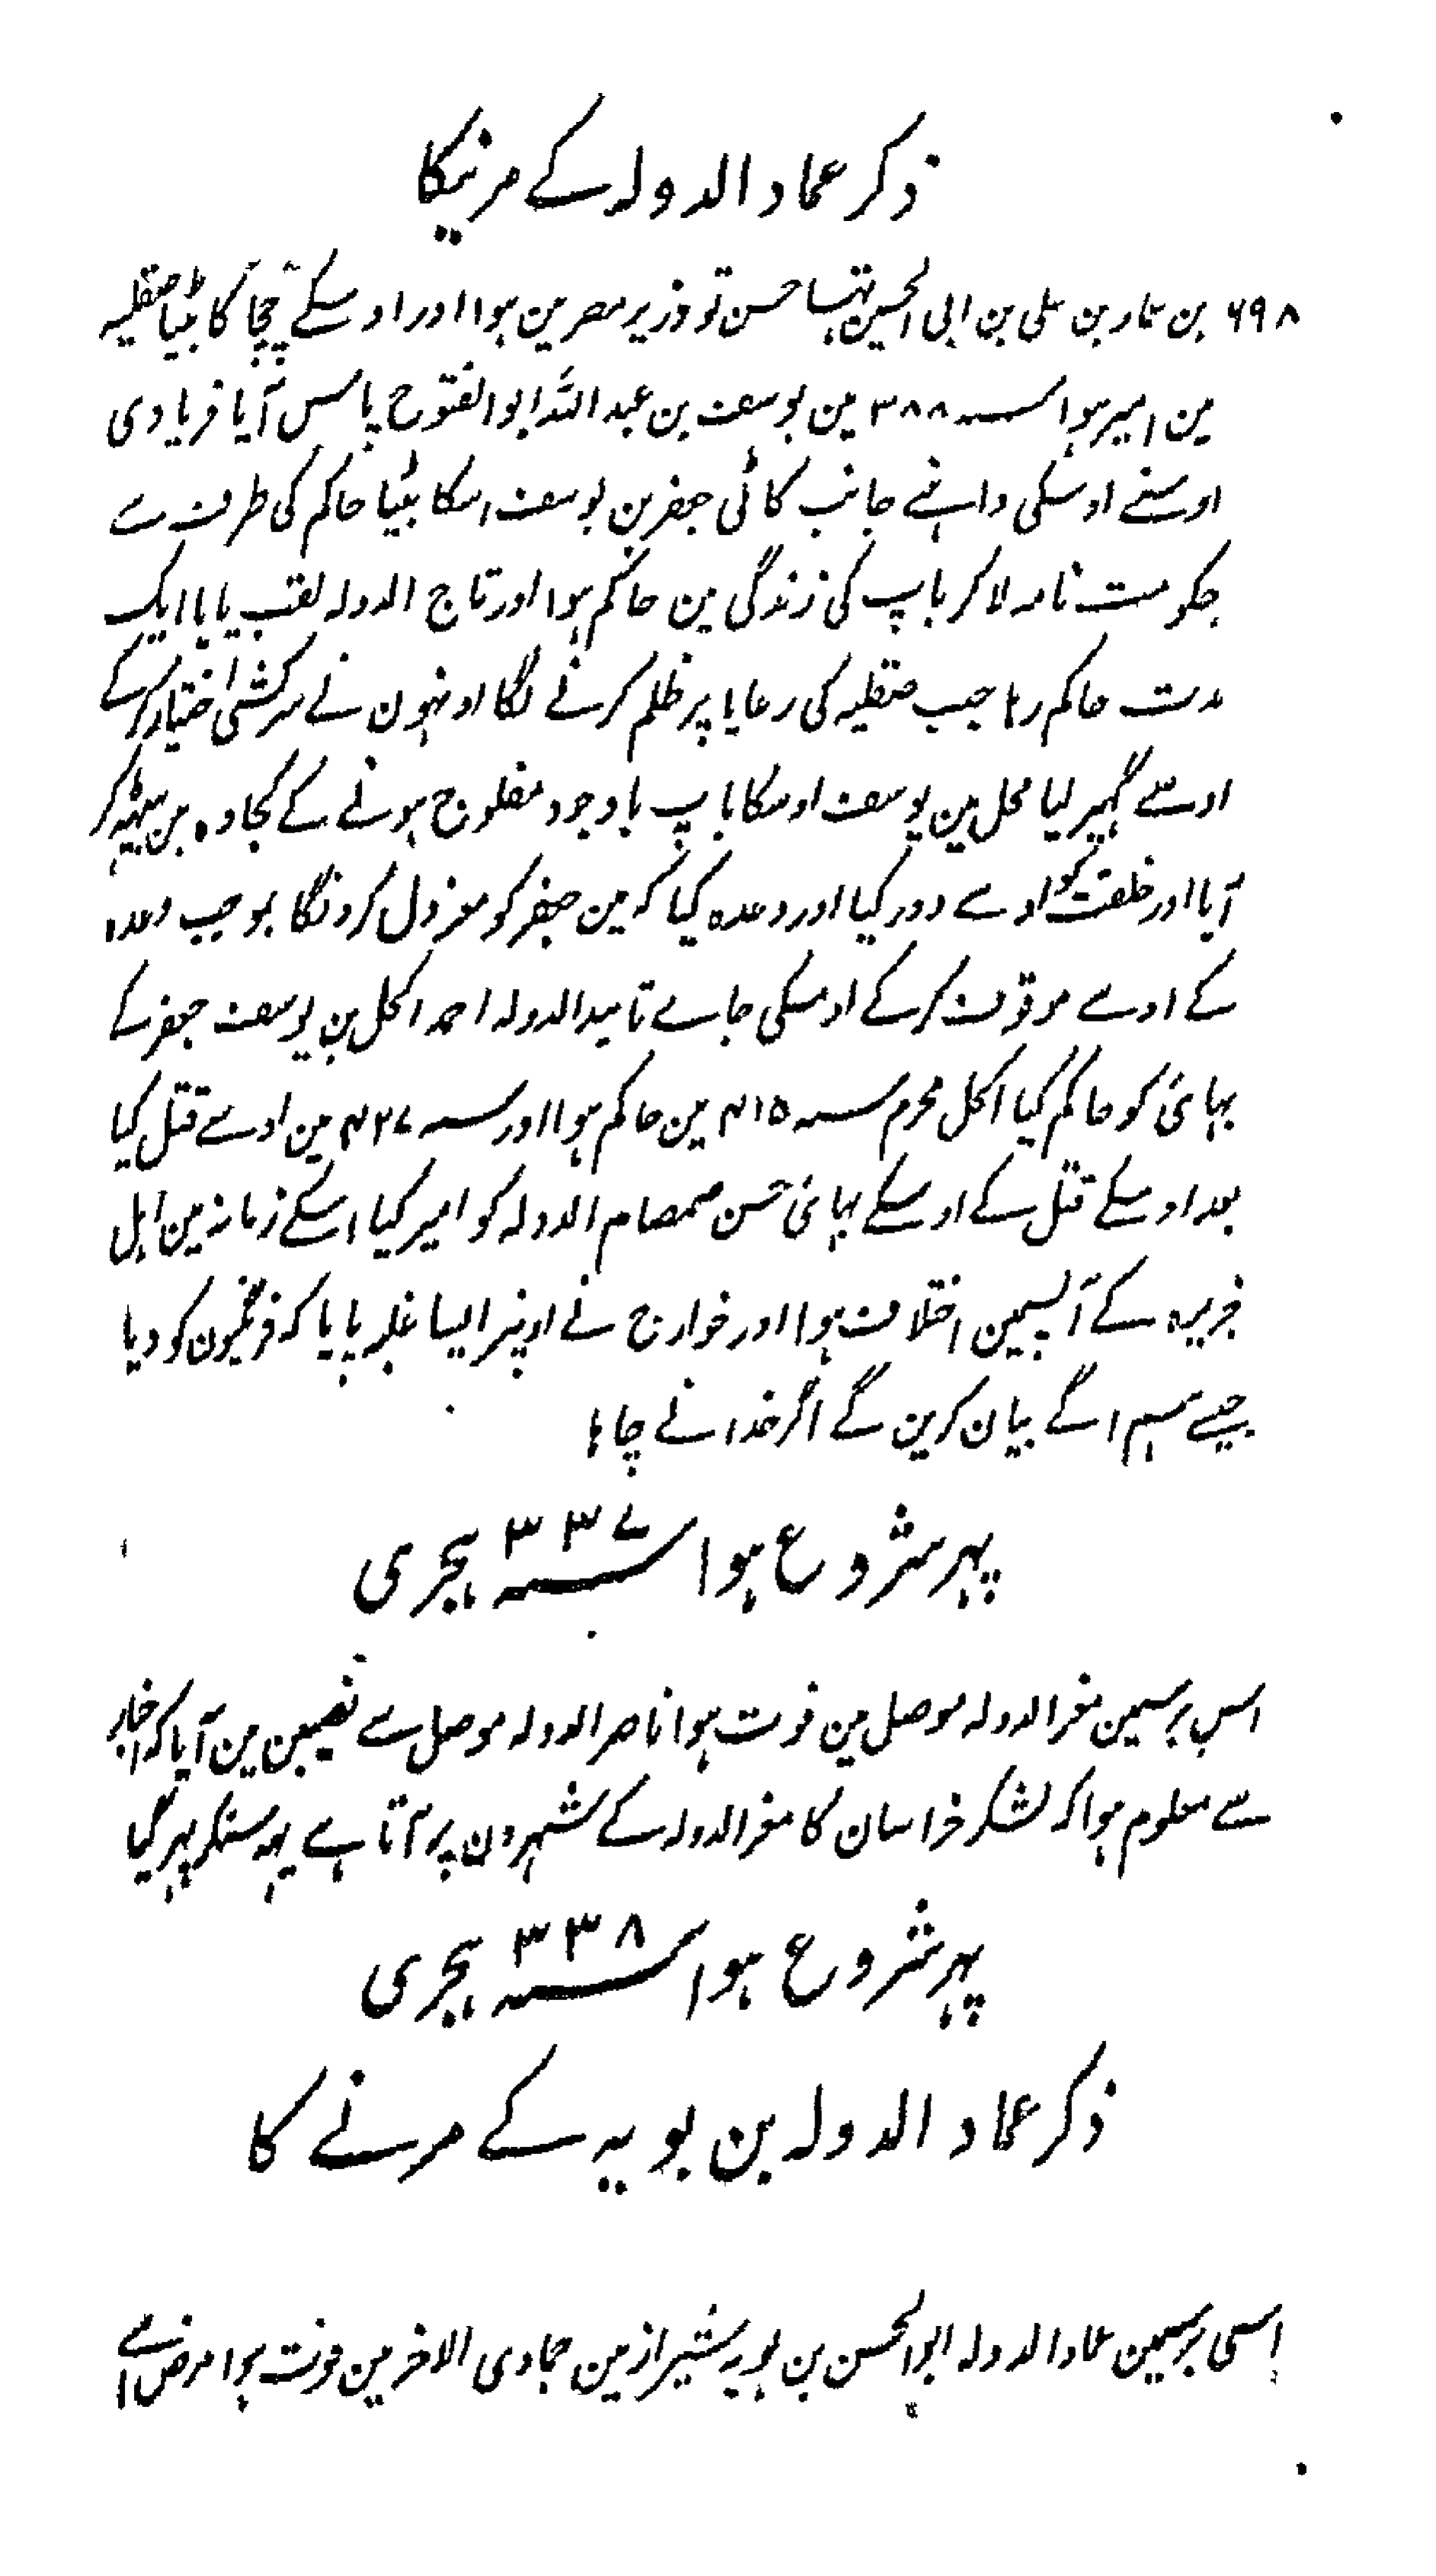 ذکر عماد الدولہ کے مرنیکا
۶۹۸ بن عمار بن علی بن ابی الحسین تہا حسن تو وزیر مصر مین ہوا اور اوسکے چچا کا بیٹا صقلیہ
مین امیر ہوا سنہ ۳۸۸ مین یوسف بن عبد اللہ ابو الفتوح پاس آیا فریادی
اوسنے اوسکی داہنے جانب کاٹی جعفر بن یوسف اسکا بیٹا حاکم کی طرف سے
حکومت نامہ لا کر باپ کی زندگی مین حاکم ہوا اور تاج الدولہ لقب پایا ایک
مدت حاکم رہا جب صقلیہ کی رعایا پر ظلم کرنے لگا اونہون نے سرکشی اختیار کرکے
اوسے گہیر لیا محل مین یوسف اوسکا باپ باوجود مفلوج ہونے کے کجاوہ مین بیٹہہ کر
آیا اور خلقت کو اوسے دور کیا اور وعدہ کیا کہ مین جعفر کو معزول کرونگا بموجب وعدہ
کے اوسے موقوف کرکے اوسکی جاے تایید الدولہ احمد اکحل بن یوسف جعفر کے
بہائی کو حاکم کیا اکحل محرم سنہ ۴۱۵ مین حاکم ہوا اور سنہ ۴۲۷ مین اوسے قتل کیا
بعد اوسکے قتل کے اوسکے بہائی حسن صمصام الدولہ کو امیر کیا اسکے زمانہ مین اہل
جزیرہ کے آپسمین اختلاف ہوا اور خوارج نے اونپر ایسا غلبہ پایا کہ فرنگیون کو دیا
جیسے ہم اگے بیان کرین گے اگر خدا نے چاہا
پہر شروع ہوا سنہ ۳۳۷ ہجری
اس برسمین معز الدولہ موصل مین فوت ہوا ناصر الدولہ موصل سے نصیبین مین آیا کہ اخبار
سے معلوم ہوا کہ لشکر خراسان کا معز الدولہ کے شہرون پر آتا ہے یہہ سنکر پہر گیا
پہر شروع ہوا سنہ ۳۳۸ ہجری
ذکر عماد الدولہ بن بویہ کے مرنے کا
اسی برسمین عماد الدولہ ابو الحسن بن بویہ شیراز مین جمادی الاخر مین فوت ہوا مرض اسے